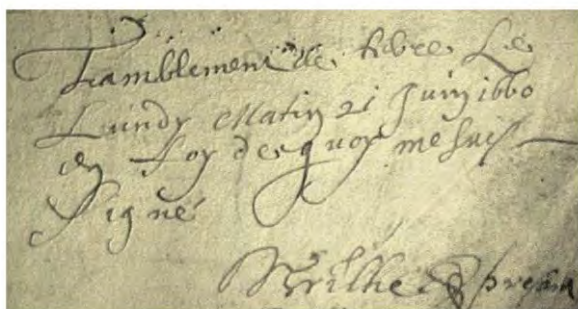 Tramblement de terre Le
Lundy Matin 21 Juin 1660
en foy de quoy me suis
Signé